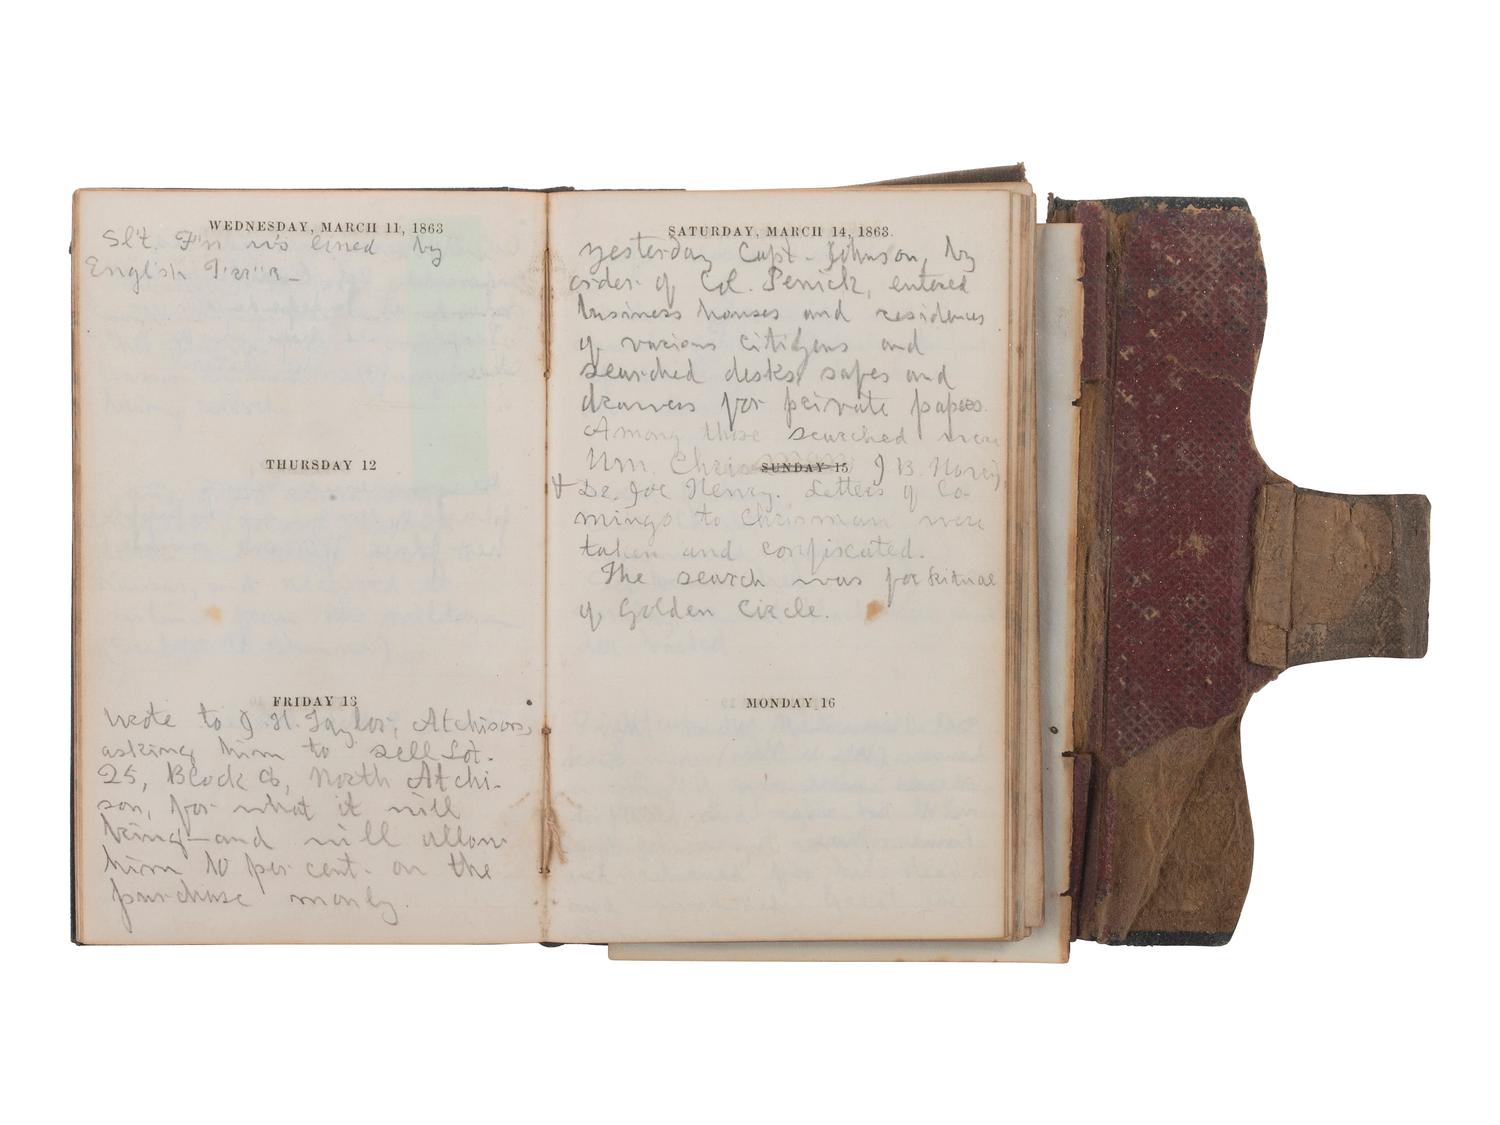 WEDNESDAY, MARCH 11, 1863
lined by
English
THURSDAY 12
FRIDAY 13
Wrote to J. H. Taylor, Atchison,
asking him to sell Lot.
25, Block 6, North Atchi-
son, for what it will
bring—and will allow
him 10 per cent. on the
purchase money.
SATURDAY, MARCH 14, 1863.
yesterday Capt. Johnson, by
order of Col. Penick, entered
business houses and residences
of various citizens and
searched desks, safes and
drawers for private papers.
Among those searched were
Wm. Chris SUNDAY 15 J B. 
& Dr. Joe Henry. Letters of Co-
mingo to Chrisman were
taken and confiscated.
The search was for ritual
of Golden Circle.
MONDAY 16